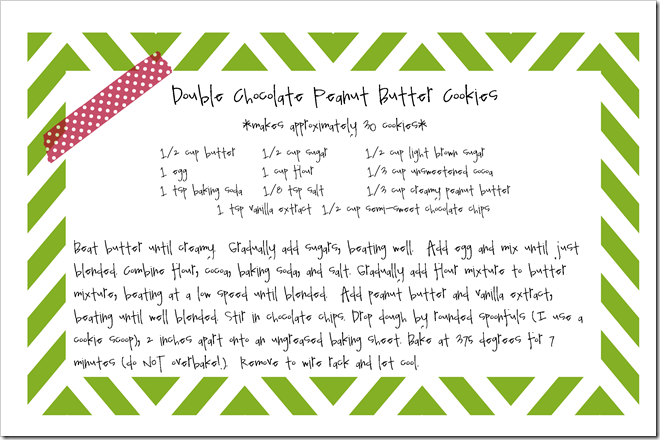 Double Chocolate Peanut Butter Cookies
*makes approximately 30 cookies*
1/2 cup butter 1/2 cup sugar 1/2 cup light brown sugar
1 egg 1 cup flour 1/3 cup unsweetened cocoa
1 tsp baking soda 1/8 tsp salt 1/3 cup creamy peanut butter
1 tsp vanilla extract 1/2 cup semi-sweet chocolate chips
Beat butter until creamy. Gradually add sugars, beating well. Add egg and mix until just
blended. Combine flour, cocoa, baking soda, and salt. Gradually add flour mixture to butter
mixture, beating at a low speed until blended. Add peanut butter and vanilla extract,
beating until well blended. Stir in chocolate chips. Drop dough by rounded spoonfuls (I use a
cookie scoop), 2 inches apart onto an ungreased baking sheet. Bake at 375 degrees for 7
minutes (do NOT overbake!). Remove to wire rack and let cool.